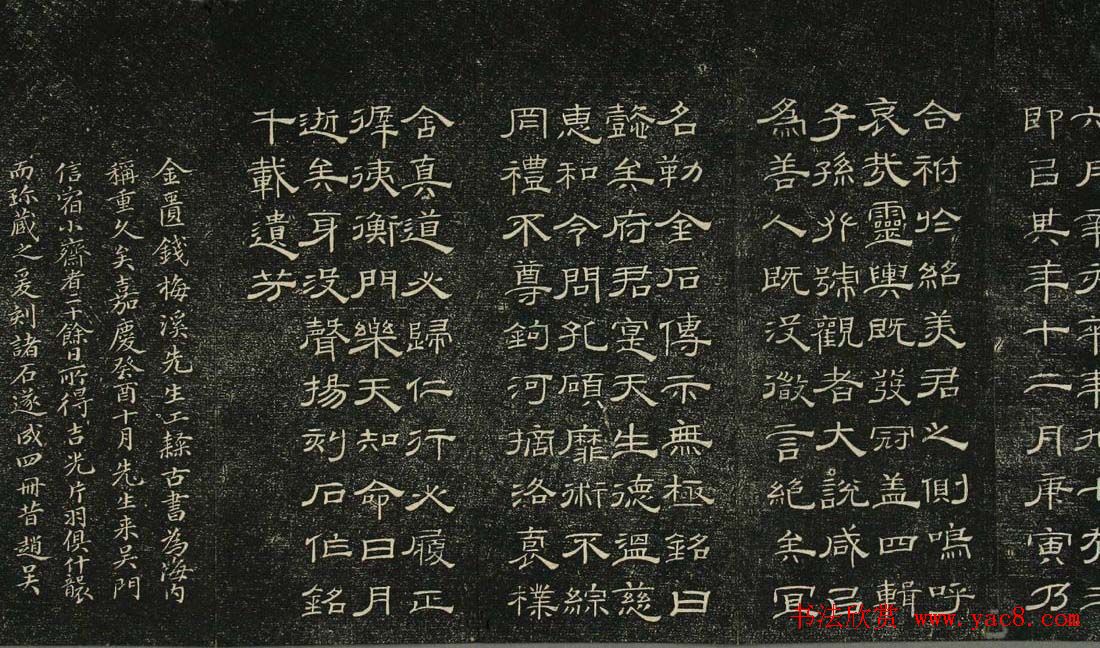 六月辛卒年九十有三
即已其年十二月庚寅乃
合祔於紹美君之側嗚呼
哀哉靈輿既發冠盖四輯
子孫號觀者大說咸曰
為善人既没徽言絶矣宜
名勒金石傳示無極銘曰
懿矣府君寔天生德溫慈
惠和令問孔碩靡術不綜
罔禮不尊鉤河摘洛裒樸
含真道必歸仁行必履正
徲侇衡門樂天知命日月
逝矣身没聲揚刻石作銘
千載遺芳
金匱錢梅溪先生工隸古書為海内
稱重久矣嘉慶癸酉十月先生来吴門
信宿小齋者二十餘日所得吉光片羽俱什襲
而珍蔵之爰刻諸石遂成四冊昔趙吴
书法欣赏 www.yac8.com